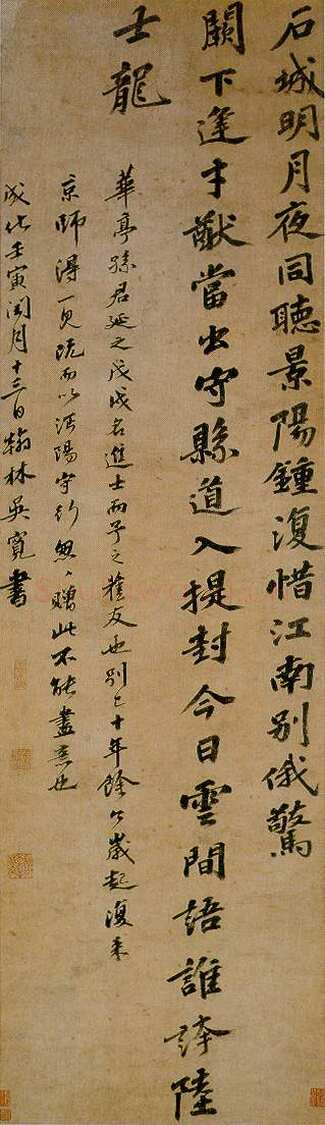 石城明月夜同聽景陽鍾復惜江南別俄驚
闕下逢才猷當出守縣道入提封今日雲間語誰誇陸
士龍
華亭孫君延之戊戌名進士而予之友也別已十年餘今歲起復來
京師得一見既而以沔陽守行忽〻贈此不能盡意也
成化壬寅閏月十三日翰林吳寬書